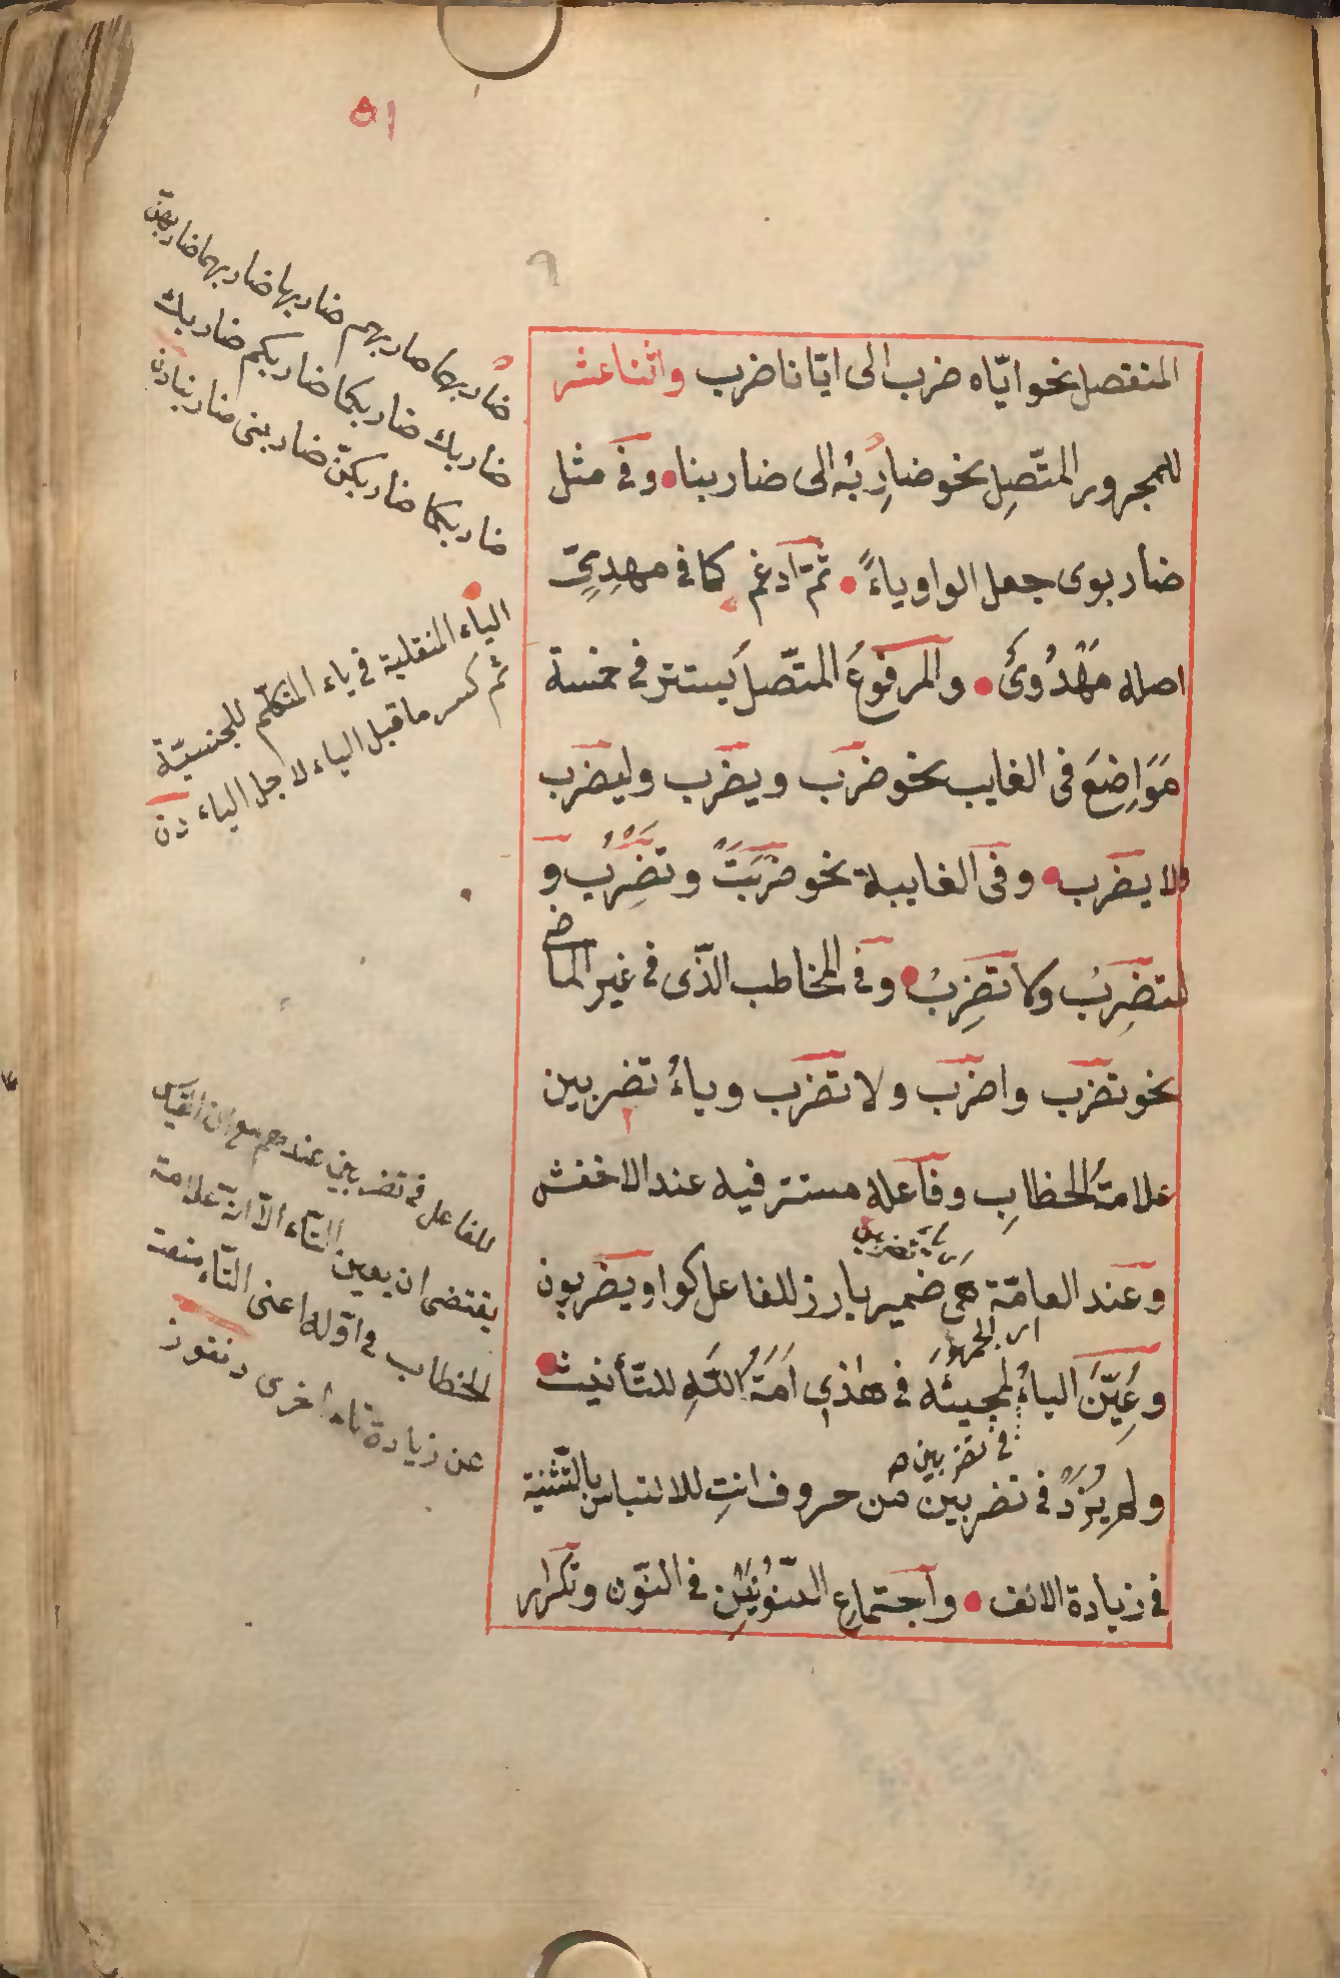 ٥١
المنفصل نحو ايّاه ضرب الى ايّانا ضرب واثنا عشر
للمجرور المتّصِل نحو ضارِبُه الى ضاربنا وفى مثل
ضاربوى جعل الواو ياءً ثمّ ادغم كما فى مهدِىٍّ
اصله مَهْدُوىٌ والمرفوعُ المتّصل يَستتر فى خمسة
مَوَاضِعَ فى الغايب نحو ضرَب ويضرَب وليضرَب
ولا يضرَب وفى الغايبة نحو ضرَبَتْ وتضْرِبُ و
لتضرِبْ ولا تضرِبْ وفى المخاطب الذّى فى غير الماضى
نحو تضرب واضرب ولا تضرب وياءُ تضربين
علامةُ الخطابِ وفاعله مستتر فيه عند الاخفش
اى ياء تضربين
وعند العامّة هى ضمير بارز للفاعل كواو يضربون
وعُيِّنَ الياءُ لمجيئه فى هٰذِى اَمَةُ اللّهِ للتّأنيث
فى تضربين
ولم يُزَدْ فى تضربين من حروف انتِ للالتباس بالتّثنية
فى زيادة الالف واجتماعِ النّونَيْنِ فى النّون وتكرار
ضاربهما ضاربهم ضاربها ضاربهما ضاربهنّ
ضاربك ضاربكما ضاربكم ضاربك
ضاربكما ضاربكنّ ضاربى ضاربنا
الياء المنقلبة فى ياء المتكلّم للجنسيّة
ثم كسر ما قبل الياء لاجل الياء
للفاعل فى تضربين عندهم مع ان القياس
يقتضى ان يعين التّاء الاّ انّ علامة
الخطاب فى اوّله اعنى التّاء منعت
عن زيادة تاء اخرى